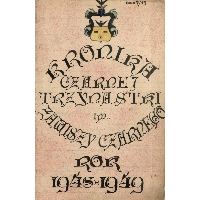 KRONIKA
CZARNEJ
TRZYNASTKI
im.
ZAWISZY CZARNEGO
ROK
1945-1949